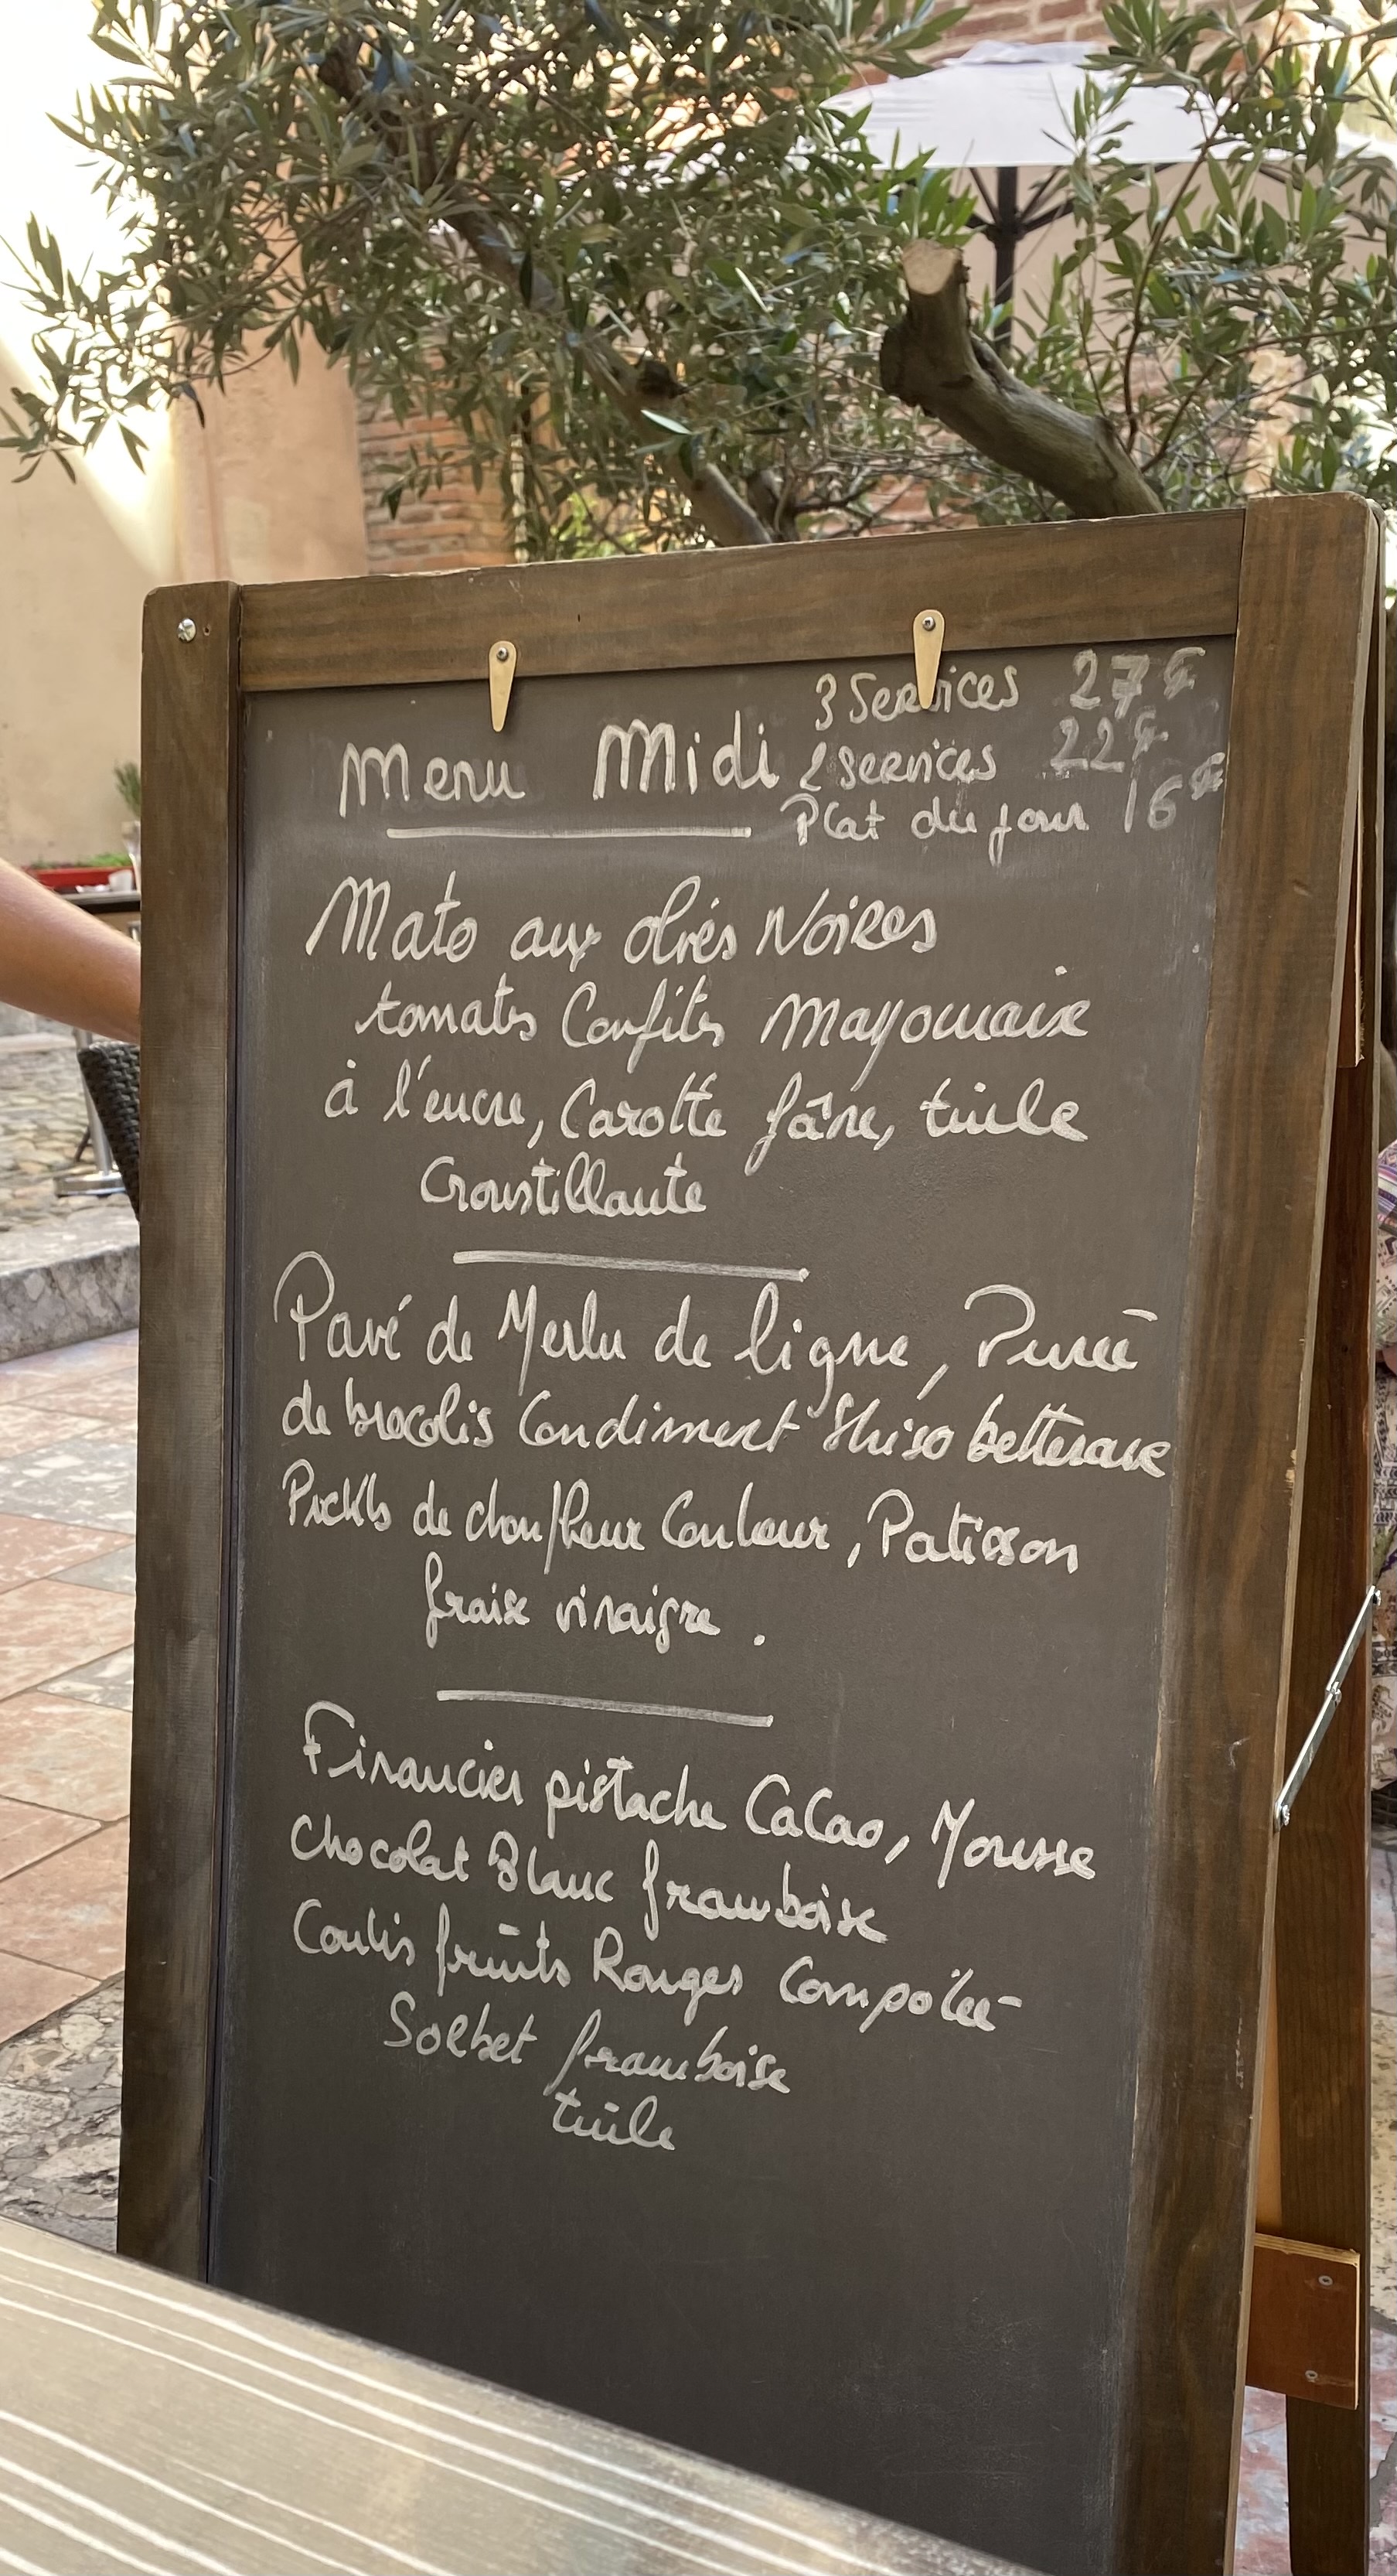 3 Services 27€
Menu Midi 2 Services 22€
Plat du jour 16€
Mato aux olives Noires
tomates Confites Mayonnaise
à l'encre, Carotte fâne, tuile
Croustillante
Pavé de Merlu de ligne, Purée
de brocolis Condiment Shiso betterave
Pickles de choufleur Couleur, Patisson
fraise vinaigre.
Financier pistache CaCao, Mousse
Chocolat Blanc framboise
Coulis fruits Rouges Compotée
Sorbet framboise
tuile